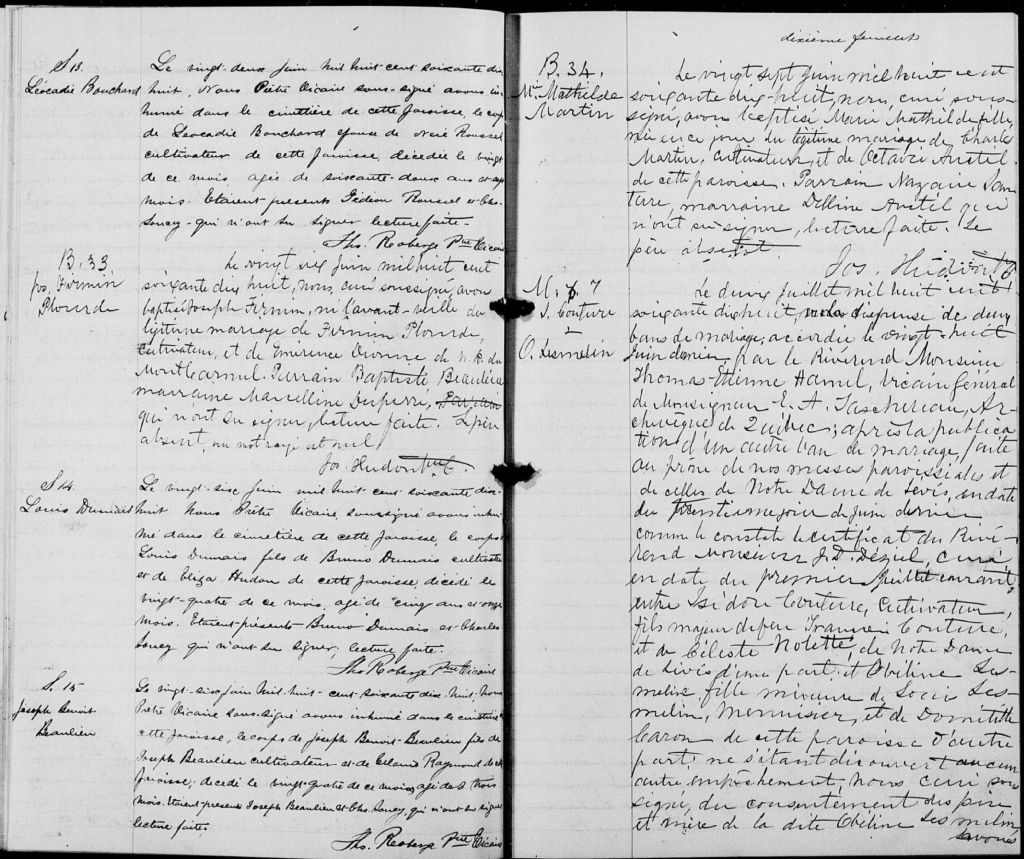 S 13.
Léocadie Bouchard
Le vingt-deux Juin mil huit-cent soixante dix
huit, Nous Prêtre Vicaire sous-signé avons in-
humé dans le cimetière de cette Paroisse, le corps
de Léocadie Bouchard épouse de Roussel
cultivateur de cette Paroisse, décédée le vingt
de ce mois, agée de soixante-douze ans et
mois. Etaient présents Gédéon Roussel et Chs.
Soucy qui n'ont su signer lecture faite.
Ths. Roberge Ptre Vicaire
B. 33
Jos. Firmin
Plourde
Le vingt six Juin mil huit cent
soixante dix huit, nous, curé soussigné, avons
baptisé Joseph Firmin, né l'avant-veille du
légitime mariage de Firmin Plourde,
cultivateur, et de Emérence Dionne de N. D. du
Mont Carmel. Parrain Baptiste Beaulieu
marraine Marcelline Duperré,
qui n'ont su signer, lecture faite. Le père
absent, un mot rayé est nul.
Jos. Hudon Ptre C.
S 14.
Louis Dumais
Le vingt-six Juin mil huit-cent soixante dix-
huit Nous Prêtre Vicaire soussigné avons inhu-
mé dans le cimetière de cette Paroisse, le corps
Louis Dumais fils de Bruno Dumais cultivateur
et de Eliza Hudon de cette Paroisse décédé le
vingt-quatre de ce mois, agé de cinq ans et onze
mois. Etaient-présents Bruno Dumais et Charles
Soucy qui n'ont su signer, lecture faite.
Ths Roberge Ptre Vicaire
S. 15
Joseph Benoit
Beaulieu
Le vingt-six Juin Mil huit-cent soixante dix-huit, Nous
Prêtre Vicaire sous-signé avons inhumé dans le cimetière
cette Paroisse, le corps de Joseph Benoit-Beaulieu fils de
Joseph Beaulieu cultivateur et de Raymond de cette
Paroisse, décédé le vingt-quatre de ce mois, agé de trois
mois. Etaient présents Joseph Beaulieu et Chs. Soucy, qui n'ont su signer
lecture faite.
Ths. Roberge Ptre Vicaire
dixième feuillet
B. 34.
Mie Mathilde
Martin
Le vingt sept Juin mil huit cent
soixante dix-huit, nous, curé sous-
signé, avons baptisé Marie Mathilde fille,
née ence jour du légitime mariage de Charles
Martin, cultivateur, et de Octavie Anstil
de cette paroisse. Parrain Nazaire San
terre, marraine Delline Anstil qui
n'ont su signer, lecture faite. Le
père absent.
Jos. Hudon Ptre
M. 7
I. Couture
O. Lesmelin
Le deux Juillet mil huit cent
soixante dix huit, vu la dispense de deux
bans de mariage, accordée le vingt-huit
Juin dernier par le Révérend Monsieur
Thomas-Etienne Hamel, Vicaire Général
de Monseigneur E. A. Taschereau, Ar-
chevêque de Québec; après la publica
tion d'un autre ban de mariage, faite
au prône de nos messes paroissiales et
de celles de Notre Dame de Lévis, en date
du trentième jour de Juin dernier
comme le constate le certificat du Révé-
rend Monsieur J. D. Déziel, curé
en date du premier Juillet courant,
entre Isidore Couture, Cultivateur,
fils majeur de feu Couture,
et de Céleste Nolette, de Notre Dame
de Lévis d'une part; et Obéline Les-
melin fille mineure de Les-
melin, Menuisier, et de Domitille
Caron de cette paroisse d'autre
part; ne s'étant découvert aucun
autre empêchement, Nous curé sous-
signé, du consentement des père
et mère de la dite Obéline Lesmelin,
avons